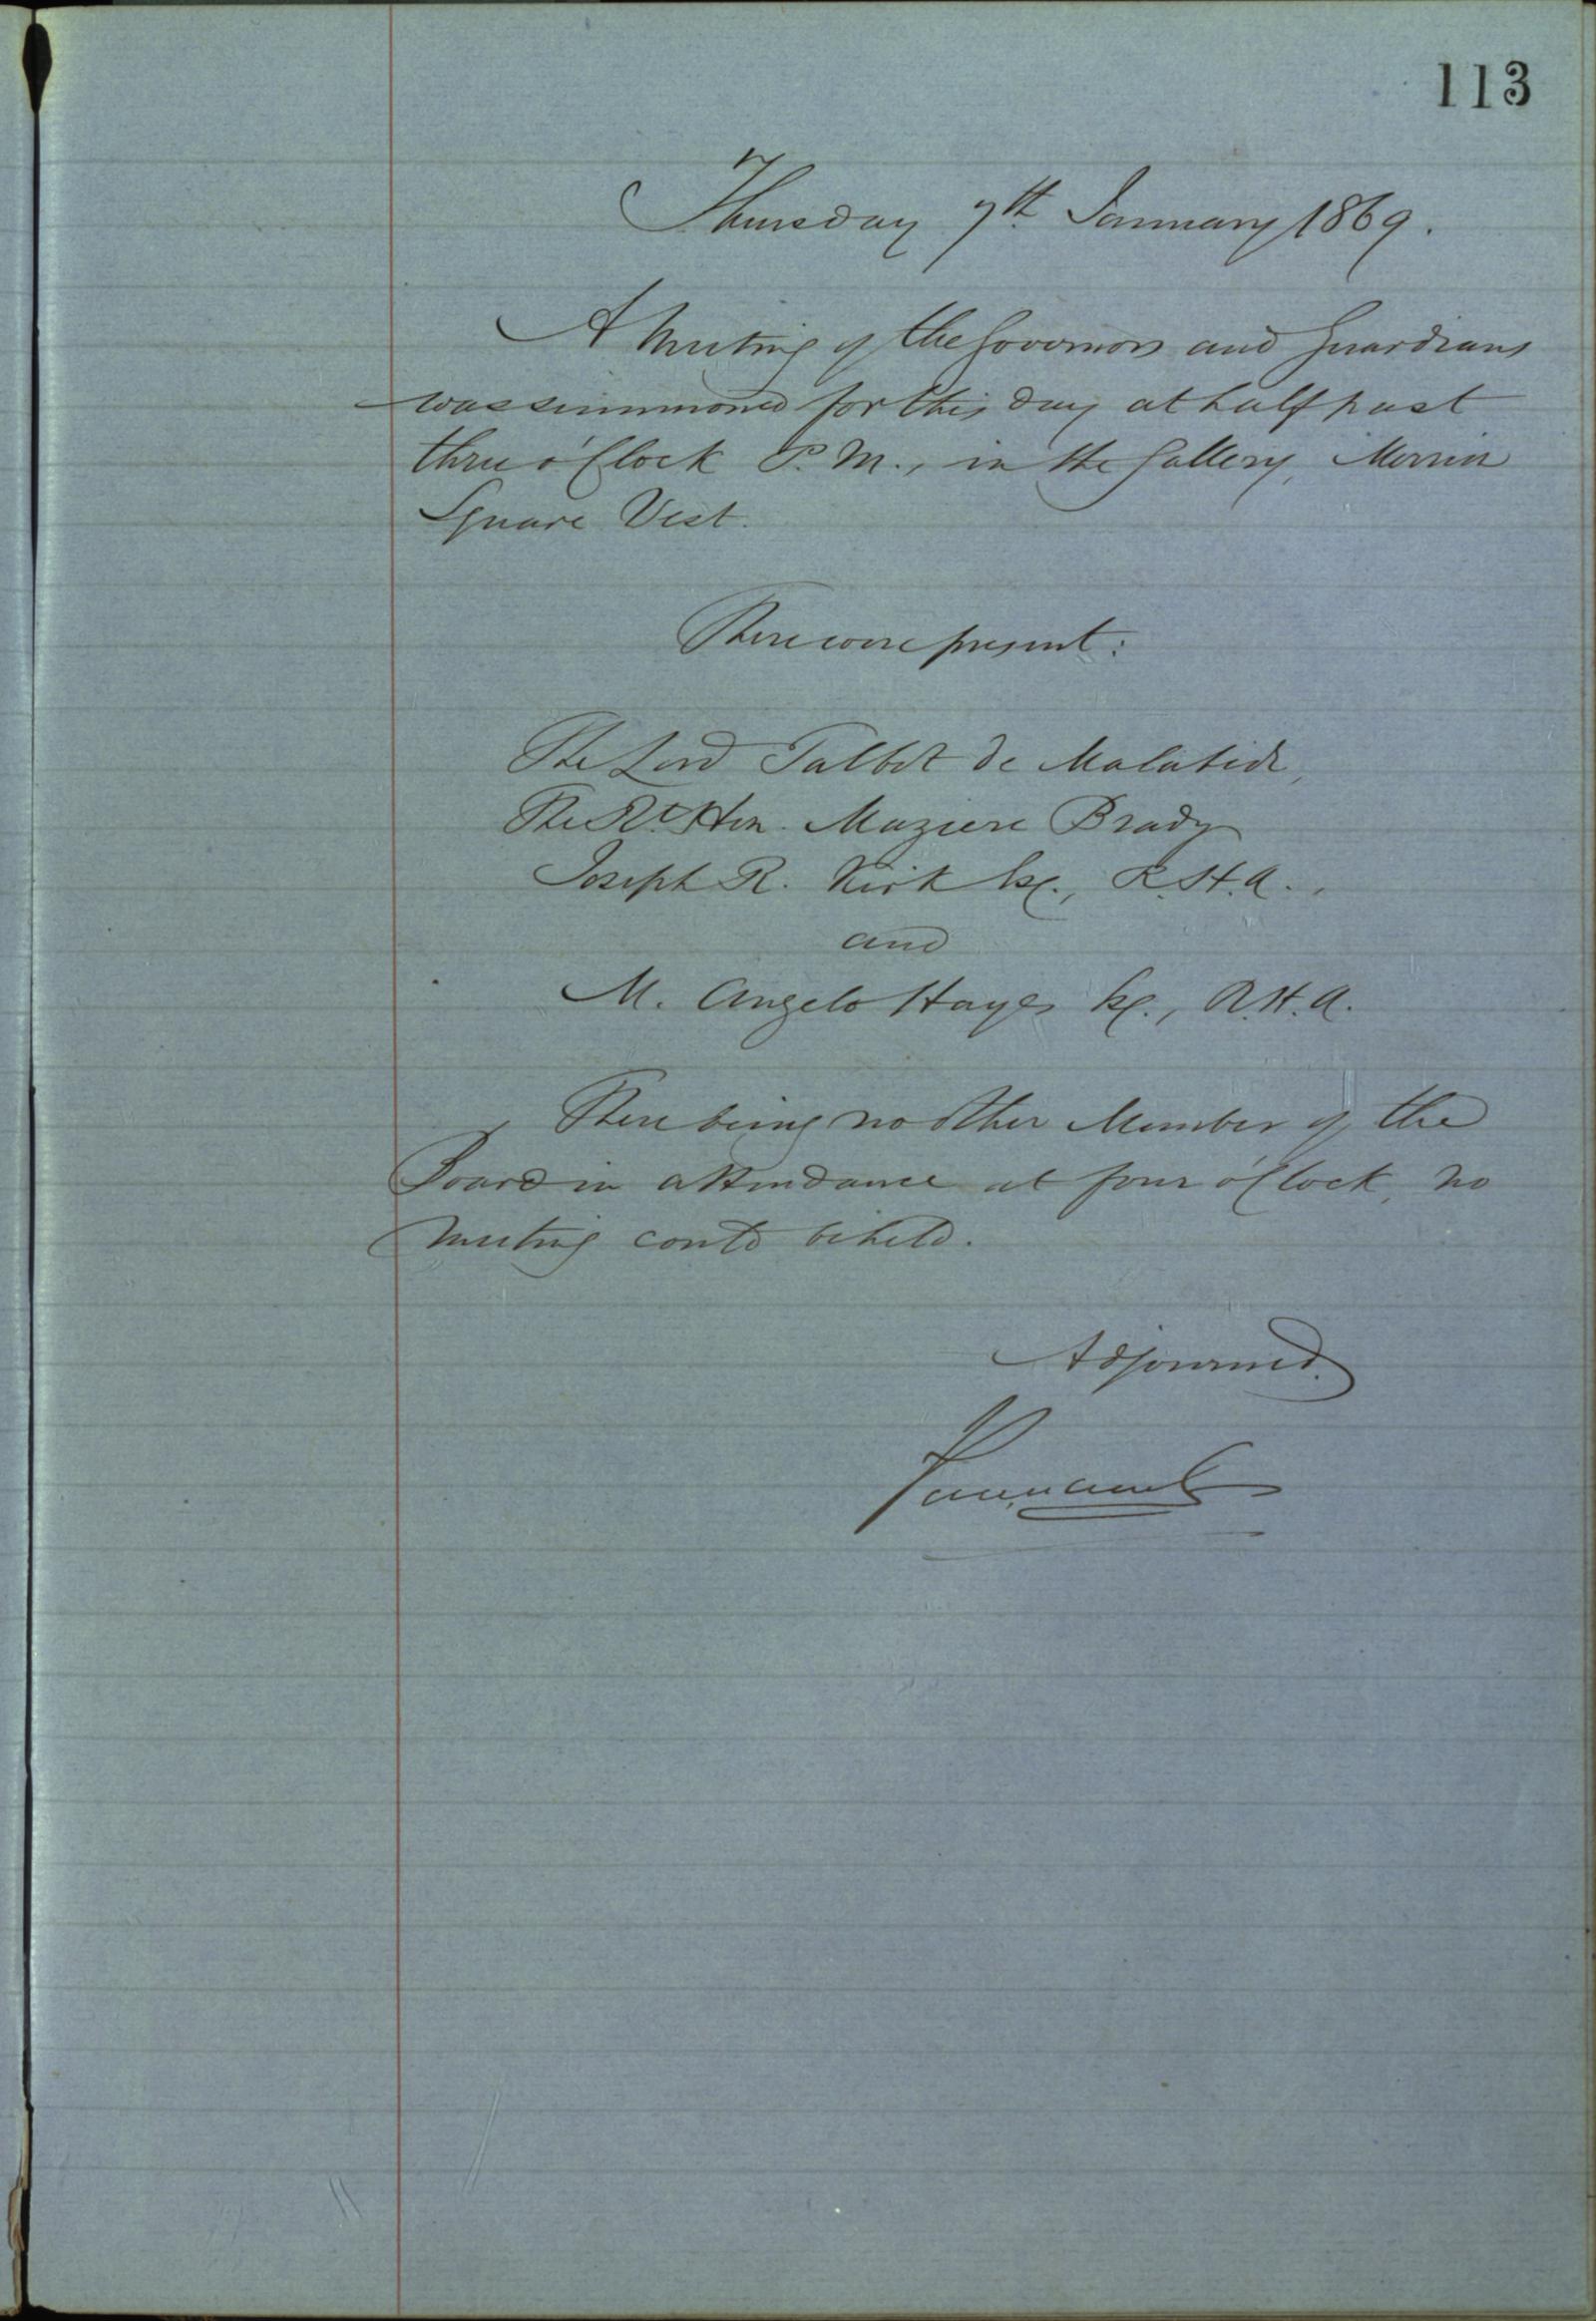 113
Thursday 7th January 1869.
A Meeting of the Governors and Guardians
was summoned for this day at half past
three o'Clock P.M., in the Gallery, Merrion
Square West.
There were present:
The Lord Talbot de Malahide,
The Rt. Hon. Maziere Brady
Joseph R. Kirk Esq., R.H.A.,
and
M. Angelo Hayes Esq., R.H.A.
There being no other Member of the
Board in attendance at four o'Clock, no
Meeting could be held.
Adjourned.